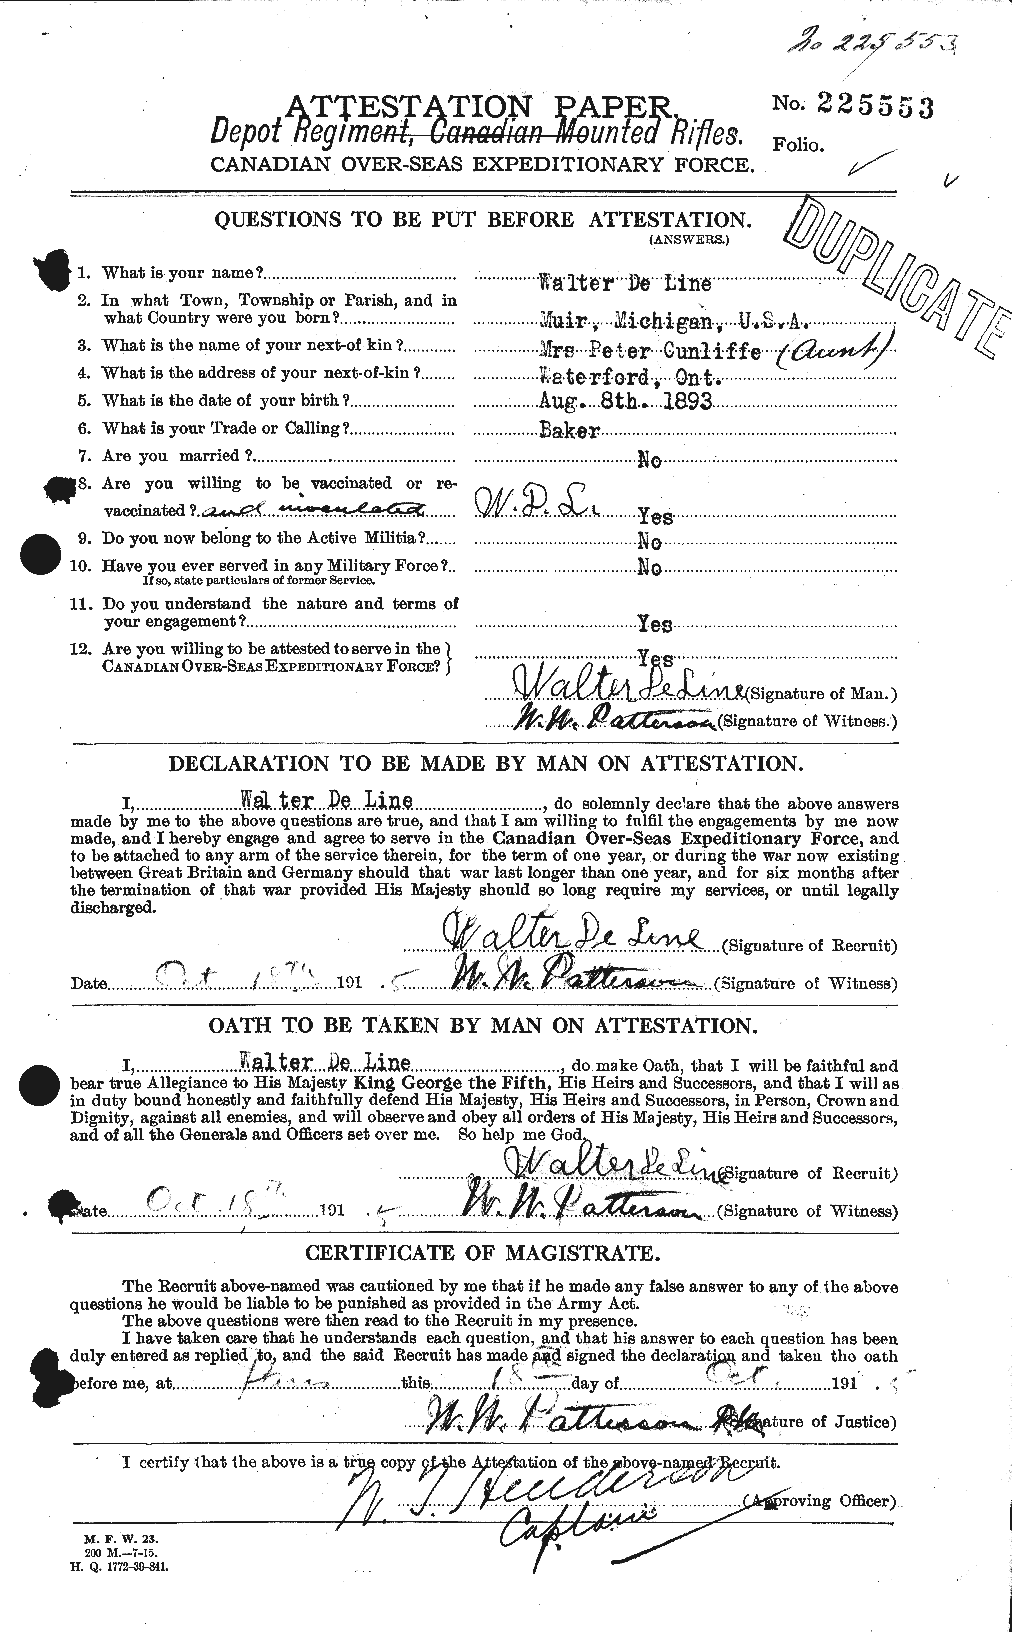 No 225553
ATTESTATION PAPER.
No. 225553
Depot Regiment, Canadian Mounted Rifles.
Folio.
CANADIAN OVER-SEAS EXPEDITIONARY FORCE.
DUPLICATE
QUESTIONS TO BE PUT BEFORE ATTESTATION.
(ANSWERS.)
1. What is your name? Walter De Line
2. In what Town, Township or Parish, and in
what Country were you born? Muir, Michigan, U.S.A.
3. What is the name of your next-of kin? Mrs Peter Cunliffe (Aunt)
4. What is the address of your next-of-kin? Waterford, Ont.
5. What is the date of your birth? Aug. 8th. 1893
6. What is your Trade or Calling? Baker
7. Are you married? No
8. Are you willing to be vaccinated or re-
vaccinated? and innoculated W. D. L. Yes
9. Do you now belong to the Active Militia? No
10. Have you ever served in any Military Force? No
If so, state particulars of former Service.
11. Do you understand the nature and terms of
your engagement? Yes
12. Are you willing to be attested to serve in the
CANADIAN OVER-SEAS EXPEDITIONARY FORCE? } Yes
Walter De Line (Signature of Man.)
W. W. Patterson (Signature of Witness.)
DECLARATION TO BE MADE BY MAN ON ATTESTATION.
I, Walter De Line, do solemnly declare that the above answers
made by me to the above questions are true, and that I am willing to fulfil the engagements by me now
made, and I hereby engage and agree to serve in the Canadian Over-Seas Expeditionary Force, and
to be attached to any arm of the service therein, for the term of one year, or during the war now existing
between Great Britain and Germany should that war last longer than one year, and for six months after
the termination of that war provided His Majesty should so long require my services, or until legally
discharged.
Walter De Line (Signature of Recruit)
Date Oct 18th 191 . 5 W. W. Patterson (Signature of Witness)
OATH TO BE TAKEN BY MAN ON ATTESTATION.
I, Walter De Line, do make Oath, that I will be faithful and
bear true Allegiance to His Majesty King George the Fifth, His Heirs and Successors, and that I will as
in duty bound honestly and faithfully defend His Majesty, His Heirs and Successors, in Person, Crown and
Dignity, against all enemies, and will observe and obey all orders of His Majesty, His Heirs and Successors,
and of all the Generals and Officers set over me. So help me God.
Walter De Line (Signature of Recruit)
Date Oct 18th 191 . 5 W. W. Patterson (Signature of Witness)
CERTIFICATE OF MAGISTRATE.
The Recruit above-named was cautioned by me that if he made any false answer to any of the above
questions he would be liable to be punished as provided in the Army Act.
The above questions were then read to the Recruit in my presence.
I have taken care that he understands each question, and that his answer to each question has been
duly entered as replied to, and the said Recruit has made and signed the declaration and taken the oath
before me, at this 18 day of Oct. 191 . 5
W. W. Patterson (Signature of Justice)
I certify that the above is a true copy of the Attestation of the above-named Recruit.
Henderson (Approving Officer)
Captain
M. F. W. 23.
200 M.—7-15.
H. Q. 1772-39-841.